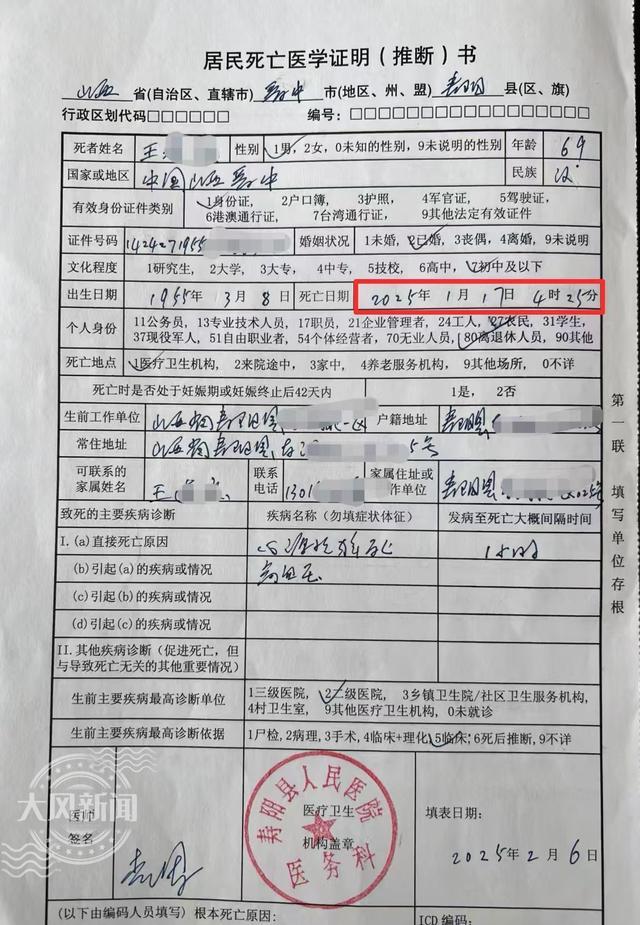 居民死亡医学证明（推断）书
山西 省(自治区、直辖市) 晋中 市(地区、州、盟) 寿阳 县(区、旗)
行政区划代码□□□□□□ 编号：□□□□□□□□□□□□□□□□□
死者姓名 王 性别 1男，2女，0未知的性别，9未说明的性别 年龄 69
国家或地区 中国山西晋中 民族 汉
有效身份证件类别 1身份证， 2户口簿， 3护照， 4军官证， 5驾驶证，
6港澳通行证， 7台湾通行证， 9其他法定有效证件
证件号码 1424271955 婚姻状况 1未婚，2已婚，3丧偶，4离婚，9未说明
文化程度 1研究生，2大学，3大专，4中专，5技校，6高中，7初中及以下
出生日期 1955年 3月8日 死亡日期 2025年 1月 17日 4时 25分
个人身份 11公务员，13专业技术人员，17职员，21企业管理者，24工人，27农民，31学生，
37现役军人，51自由职业者，54个体经营者，70无业人员，80离退休人员，90其他
死亡地点 1医疗卫生机构，2来院途中，3家中，4养老服务机构，9其他场所，0不详
死亡时是否处于妊娠期或妊娠终止后42天内 1是，2否
生前工作单位 山西省寿阳县 户籍地址 寿阳县
常住地址 山西省寿阳县 5号
可联系的
家属姓名 王 联系
电话 1301 家属住址或
工作单位 寿阳县
致死的主要疾病诊断 疾病名称（勿填症状体征） 发病至死亡大概间隔时间
I.(a)直接死亡原因 心源性猝死 1小时
(b)引起(a)的疾病或情况 高血压
(c)引起(b)的疾病或情况
(d)引起(c)的疾病或情况
II.其他疾病诊断（促进死亡，但
与导致死亡无关的其他重要情况）
生前主要疾病最高诊断单位 1三级医院，2二级医院，3乡镇卫生院/社区卫生服务机构，
4村卫生室，9其他医疗卫生机构，0未就诊
生前主要疾病最高诊断依据 1尸检，2病理，3手术，4临床+理化，5临床；6死后推断，9不详
医师
签名
医疗卫生
机构盖章
寿阳县人民医院
医务科
填表日期：
2025年2月6日
(以下由编码人员填写) 根本死亡原因： ICD编码：
第一联 填写单位存根
大风新闻